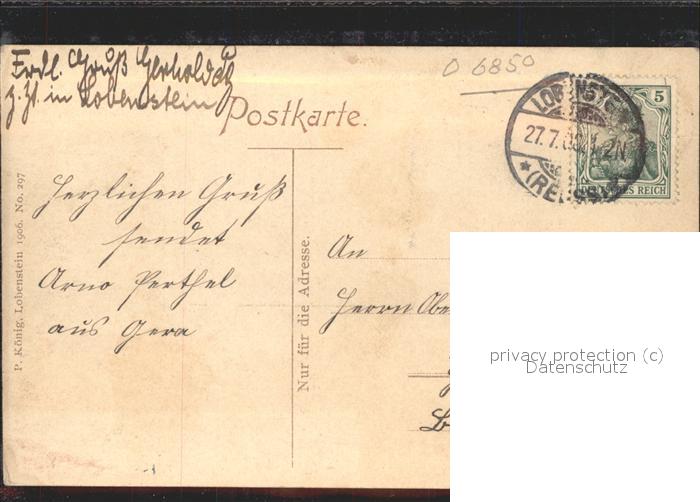 Frdl. Gruß
z. Zt. in Lobenstein
O 6850
Postkarte.
LOBENSTEIN
27.7.
2N
(REUSS)
5
DEUTSCHES REICH
Herzlichen Gruß
sendet
Arno Perthel
aus Gera
P. König, Lobenstein 1906. No. 297
Nur für die Adresse.
An
Herrn
privacy protection (c)
Datenschutz